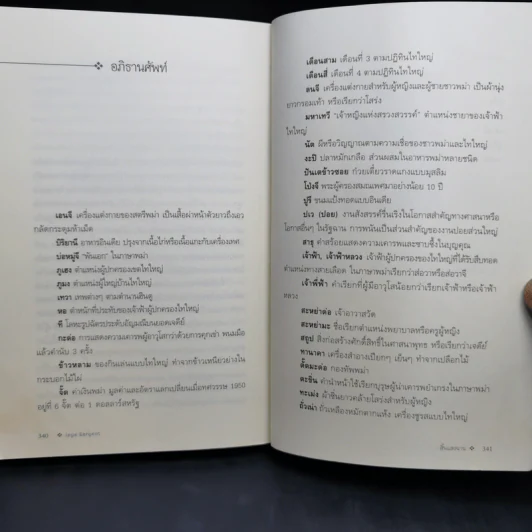 อภิธานศัพท์
เอนจี เครื่องแต่งกายของสตรีพม่า เป็นเสื้อผ่าหน้าตัวยาวถึงเอว
กลัดกระดุมห้าเม็ด
บิริยานี อาหารอินเดีย ปรุงจากเนื้อไก่หรือเนื้อแกะกับเครื่องเทศ
บ่อหมู่จี "พันเอก" ในภาษาพม่า
ภูเฮง ตำแหน่งผู้ปกครองเขตไทใหญ่
ภูมง ตำแหน่งผู้ใหญ่บ้านไทใหญ่
เทวา เทพต่างๆ ตามตำนานฮินดู
หอ ตำหนักที่ประทับของเจ้าฟ้าผู้ปกครองไทใหญ่
ที โลหะรูปฉัตรประดับอัญมณีบนยอดเจดีย์
กะต่อ การแสดงความเคารพผู้อาวุโสกว่าด้วยการคุกเข่า พนมมือ
แล้วคำนับ 3 ครั้ง
ข้าวหลาม ของกินเล่นแบบไทใหญ่ ทำจากข้าวเหนียวย่างใน
กระบอกไม้ไผ่
จั๊ต ค่าเงินพม่า มูลค่าและอัตราแลกเปลี่ยนเมื่อทศวรรษ 1950
อยู่ที่ 6 จั๊ต ต่อ 1 ดอลลาร์สหรัฐ
340
เดือนสาม เดือนที่ 3 ตามปฏิทินไทใหญ่
เดือนสี่ เดือนที่ 4 ตามปฏิทินไทใหญ่
ลนจี เครื่องแต่งกายสำหรับผู้หญิงและผู้ชายชาวพม่า เป็นผ้านุ่ง
ยาวกรอมเท้า หรือเรียกว่าโสร่ง
มหาเทวี "เจ้าหญิงแห่งสรวงสวรรค์" ตำแหน่งชายาของเจ้าฟ้า
ไทใหญ่
นัต ผีหรือวิญญาณตามความเชื่อของชาวพม่าและไทใหญ่
งะปิ ปลาหมักเกลือ ส่วนผสมในอาหารพม่าหลายชนิด
ปันเตข้าวซอย ก๋วยเตี๋ยวราดแกงแบบมุสลิม
โป่งจี พระผู้ครองสมณเพศมาอย่างน้อย 10 ปี
ปูรี ขนมแป้งทอดแบบอินเดีย
ปเว (ปอย) งานสังสรรค์รื่นเริงในโอกาสสำคัญทางศาสนาหรือ
โอกาสอื่นๆ ในรัฐฉาน การพนันเป็นส่วนสำคัญของงานปอยส่วนใหญ่
สาธุ คำสร้อยแสดงความเคารพและซาบซึ้งในบุญคุณ
เจ้าฟ้า, เจ้าฟ้าหลวง เจ้าฟ้าผู้ปกครองของไทใหญ่ที่ได้รับสืบทอด
ตำแหน่งทางสายเลือด ในภาษาพม่าเรียกว่าส่อวาหรือส่อวาจี
เจ้าพี่ฟ้า คำเรียกที่ผู้มีอาวุโสน้อยกว่าเรียกเจ้าฟ้าหรือเจ้าฟ้า
หลวง
สะหย่าด่อ เจ้าอาวาสวัด
สะหย่ามะ ชื่อเรียกตำแหน่งพยาบาลหรือครูผู้หญิง
สถูป สิ่งก่อสร้างศักดิ์สิทธิ์ในศาสนาพุทธ หรือเรียกว่าเจดีย์
ทานาคา เครื่องสำอางเปียกๆ เย็นๆ ทำจากเปลือกไม้
ตั๊ดมะด่อ กองทัพพม่า
ตะขิ่น คำนำหน้าใช้เรียกบุรุษผู้น่าเคารพยำเกรงในภาษาพม่า
ทะเม่ง ผ้าซิ่นยาวคล้ายโสร่งสำหรับผู้หญิง
ถั่วเน่า ถั่วเหลืองหมักตากแห้ง เครื่องชูรสแบบไทใหญ่
341